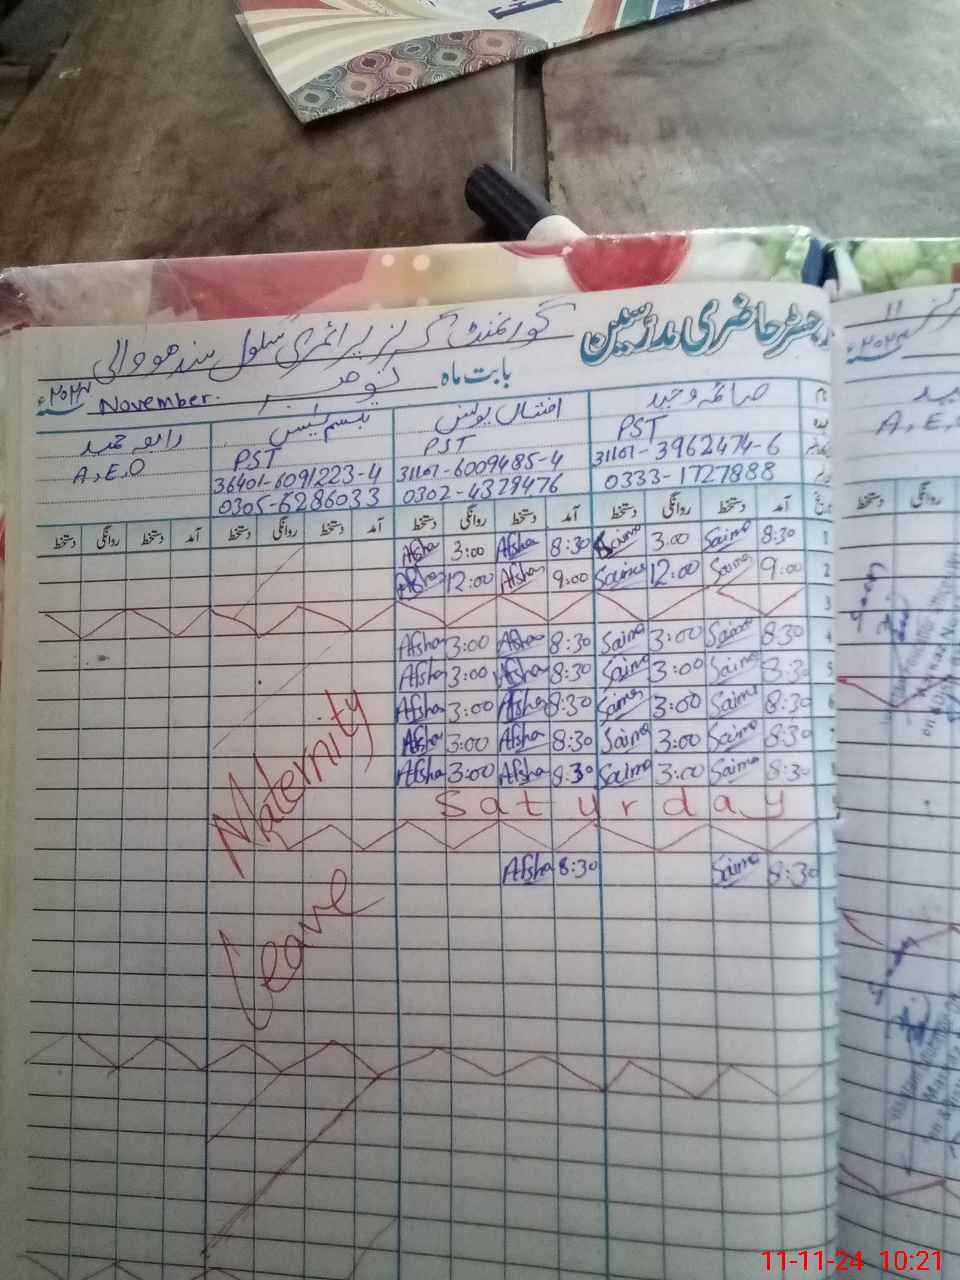 رجسٹر حاضری مدرّسین گورنمنٹ گرلز پرائمری سکول سدھووالی
بابت ماہ نومبر November. ۲۰۲۴ء
صائمہ وحید افشاں یونس تبسم رابعہ حمید
PST PST PST A.E.O
31101-3962474-6 31101-6009485-4 36401-6091223-4
0333-1727888 0302-4379476 0305-6286033
تاریخ آمد دستخط روانگی دستخط آمد دستخط روانگی دستخط آمد دستخط روانگی دستخط آمد دستخط روانگی دستخط
1 8:30 Saima 3:00 Saima 8:30 Afsha 3:00 Afsha
2 9:00 Saima 12:00 Saima 9:00 Afsha 12:00 Afsha
3
4 8:30 Saima 3:00 Saima 8:30 Afsha 3:00 Afsha
5 8:30 Saima 3:00 Saima 8:30 Afsha 3:00 Afsha
6 8:30 Saima 3:00 Saima 8:30 Afsha 3:00 Afsha
7 8:30 Saima 3:00 Saima 8:30 Afsha 3:00 Afsha
8 8:30 Saima 3:00 Saima 8:30 Afsha 3:00 Afsha
Saturday
8:30 Saima 8:30 Afsha
Maternity
Leave
A.E.O
دستخط
11-11-24 10:21